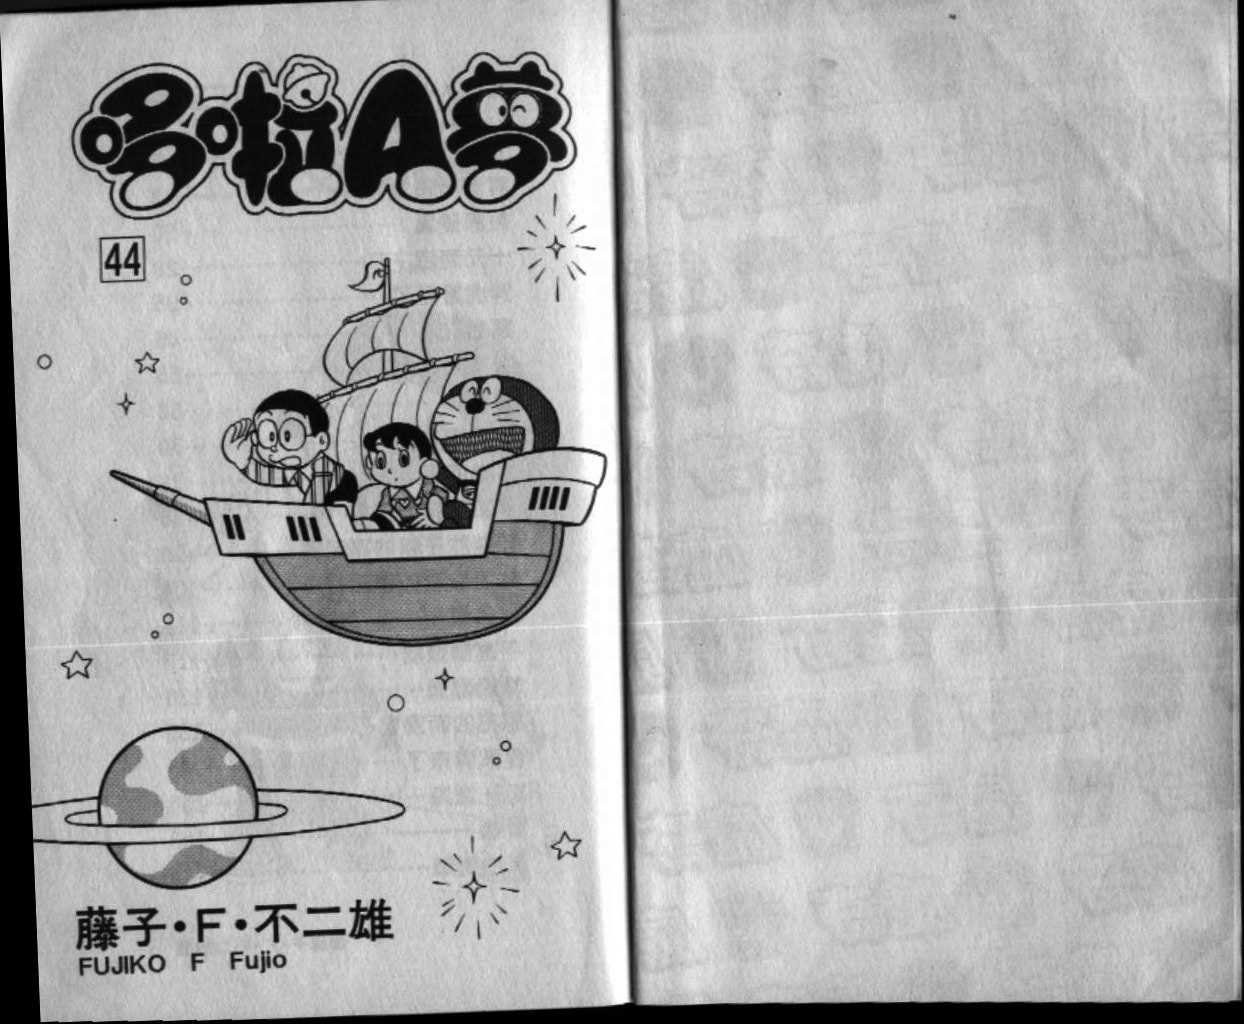 哆啦A夢
44
藤子・F・不二雄
FUJIKO F Fujio